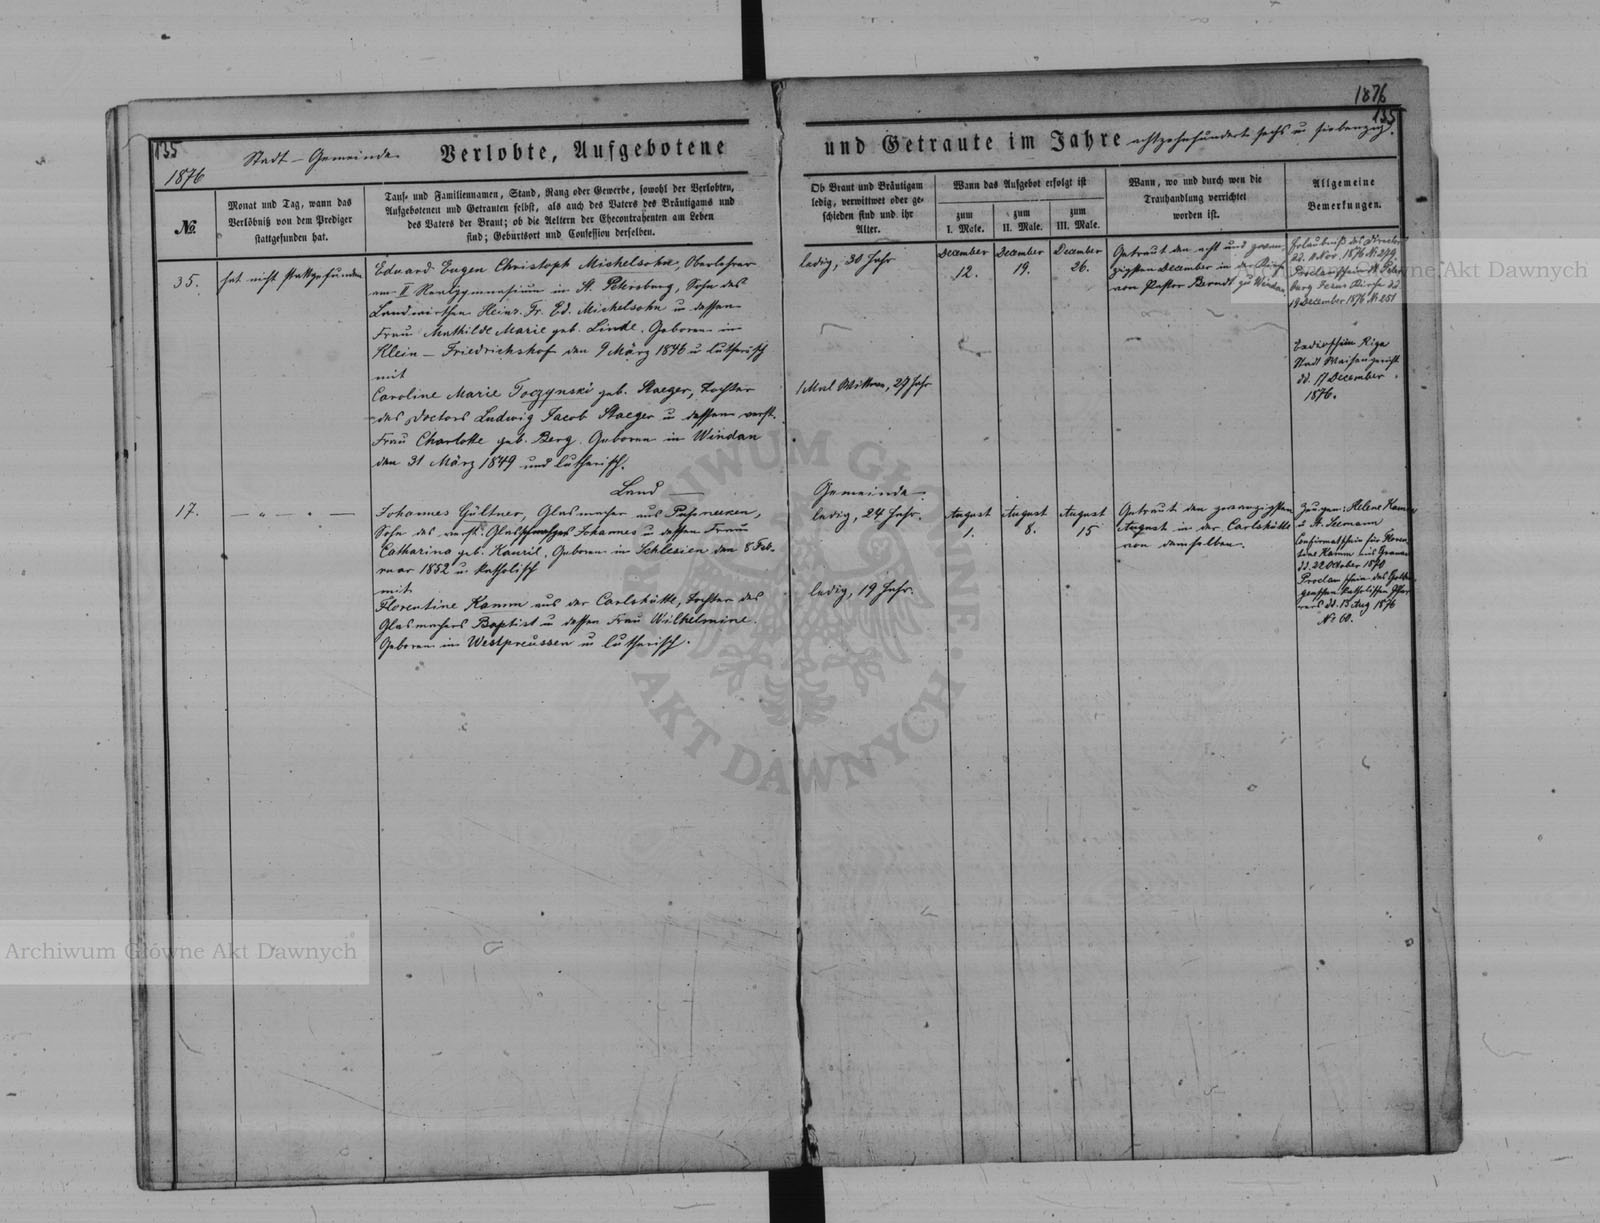 1876
135
135
1876
Stadt - Gemeinde
Verlobte, Aufgebotene
und Getraute im Jahre achtzehnhundert sechs u siebenzig.
№
Monat und Tag, wann das
Verlöbniß von dem Prediger
stattgefunden hat.
Tauf- und Familiennamen, Stand, Rang oder Gewerbe, sowohl der Verlobten,
Aufgebotenen und Getrauten selbst, als auch des Vaters des Bräutigams und
des Vaters der Braut; ob die Aeltern der Ehecontrahenten am Leben
sind; Geburtsort und Confession derselben.
Ob Braut und Bräutigam
ledig, verwittwet oder ge-
schieden sind und ihr
Alter.
Wann das Aufgebot erfolgt ist
zum
I. Male.
zum
II. Male.
zum
III. Male.
Wann, wo und durch wen die
Trauhandlung verrichtet
worden ist.
Allgemeine
Bemerkungen.
35.
hat nicht stattgefunden
Eduard Eugen Christoph Michelsohn, Oberlehrer
am II Realgymnasium in St. Petersburg, Sohn des
Landwirthen Heinr. Fr. Ed. Michelsohn u dessen
Frau Mathilde Marie geb. Linde. Geboren in
Klein-Friedrichshof den 9 März 1846 u lutherisch
mit
Caroline Marie Toczynski geb. Staeger, Tochter
des Doctors Ludwig Jacob Staeger u dessen verst.
Frau Charlotte geb. Berg. Geboren in Windau
den 31 März 1849 und lutherisch.
ledig, 30 Jahr
1 Mal Wittwe, 27 Jahr
December
12.
December
19.
December
26.
Getraut den acht und zwan-
zigsten December in der
von Pastor Berndt zu Windau.
Erlaubniß des Directors
dd. Nov. 1876 №
Proclamschein St. Peters-
burg Jesus Kirche dd
19 December 1876 № 251
Riga
Stadt Waisengericht
dd. 17 December
1876.
Land — Gemeinde.
17.
— " — " —
Johannes Gültner, Glasmacher aus
Sohn des verst. Johannes u dessen Frau
Catharina geb. Kauril. Geboren in Schlesien den 8 Feb-
ruar 1852 u. katholisch
mit
Florentine Kamm aus der Carlshütte, Tochter des
Glasmachers Baptist u dessen Frau Wilhelmine.
Geboren in Westpreussen u lutherisch.
ledig, 24 Jahr.
ledig, 19 Jahr.
August
1.
August
8.
August
15
Getraut den zwanzigsten
August in der Carlshütte
von demselben.
Zeugen: Helene Kamm
u A. Seemann
Confirmatschein für Floren-
tine Kamm aus
dd. 22 October 1870
Proclamschein des
katholischen Pfar-
rers dd. 13 Aug 1876
№ 60.
Archiwum Główne Akt Dawnych
Archiwum Główne Akt Dawnych
ARCHIWUM GŁÓWNE AKT DAWNYCH